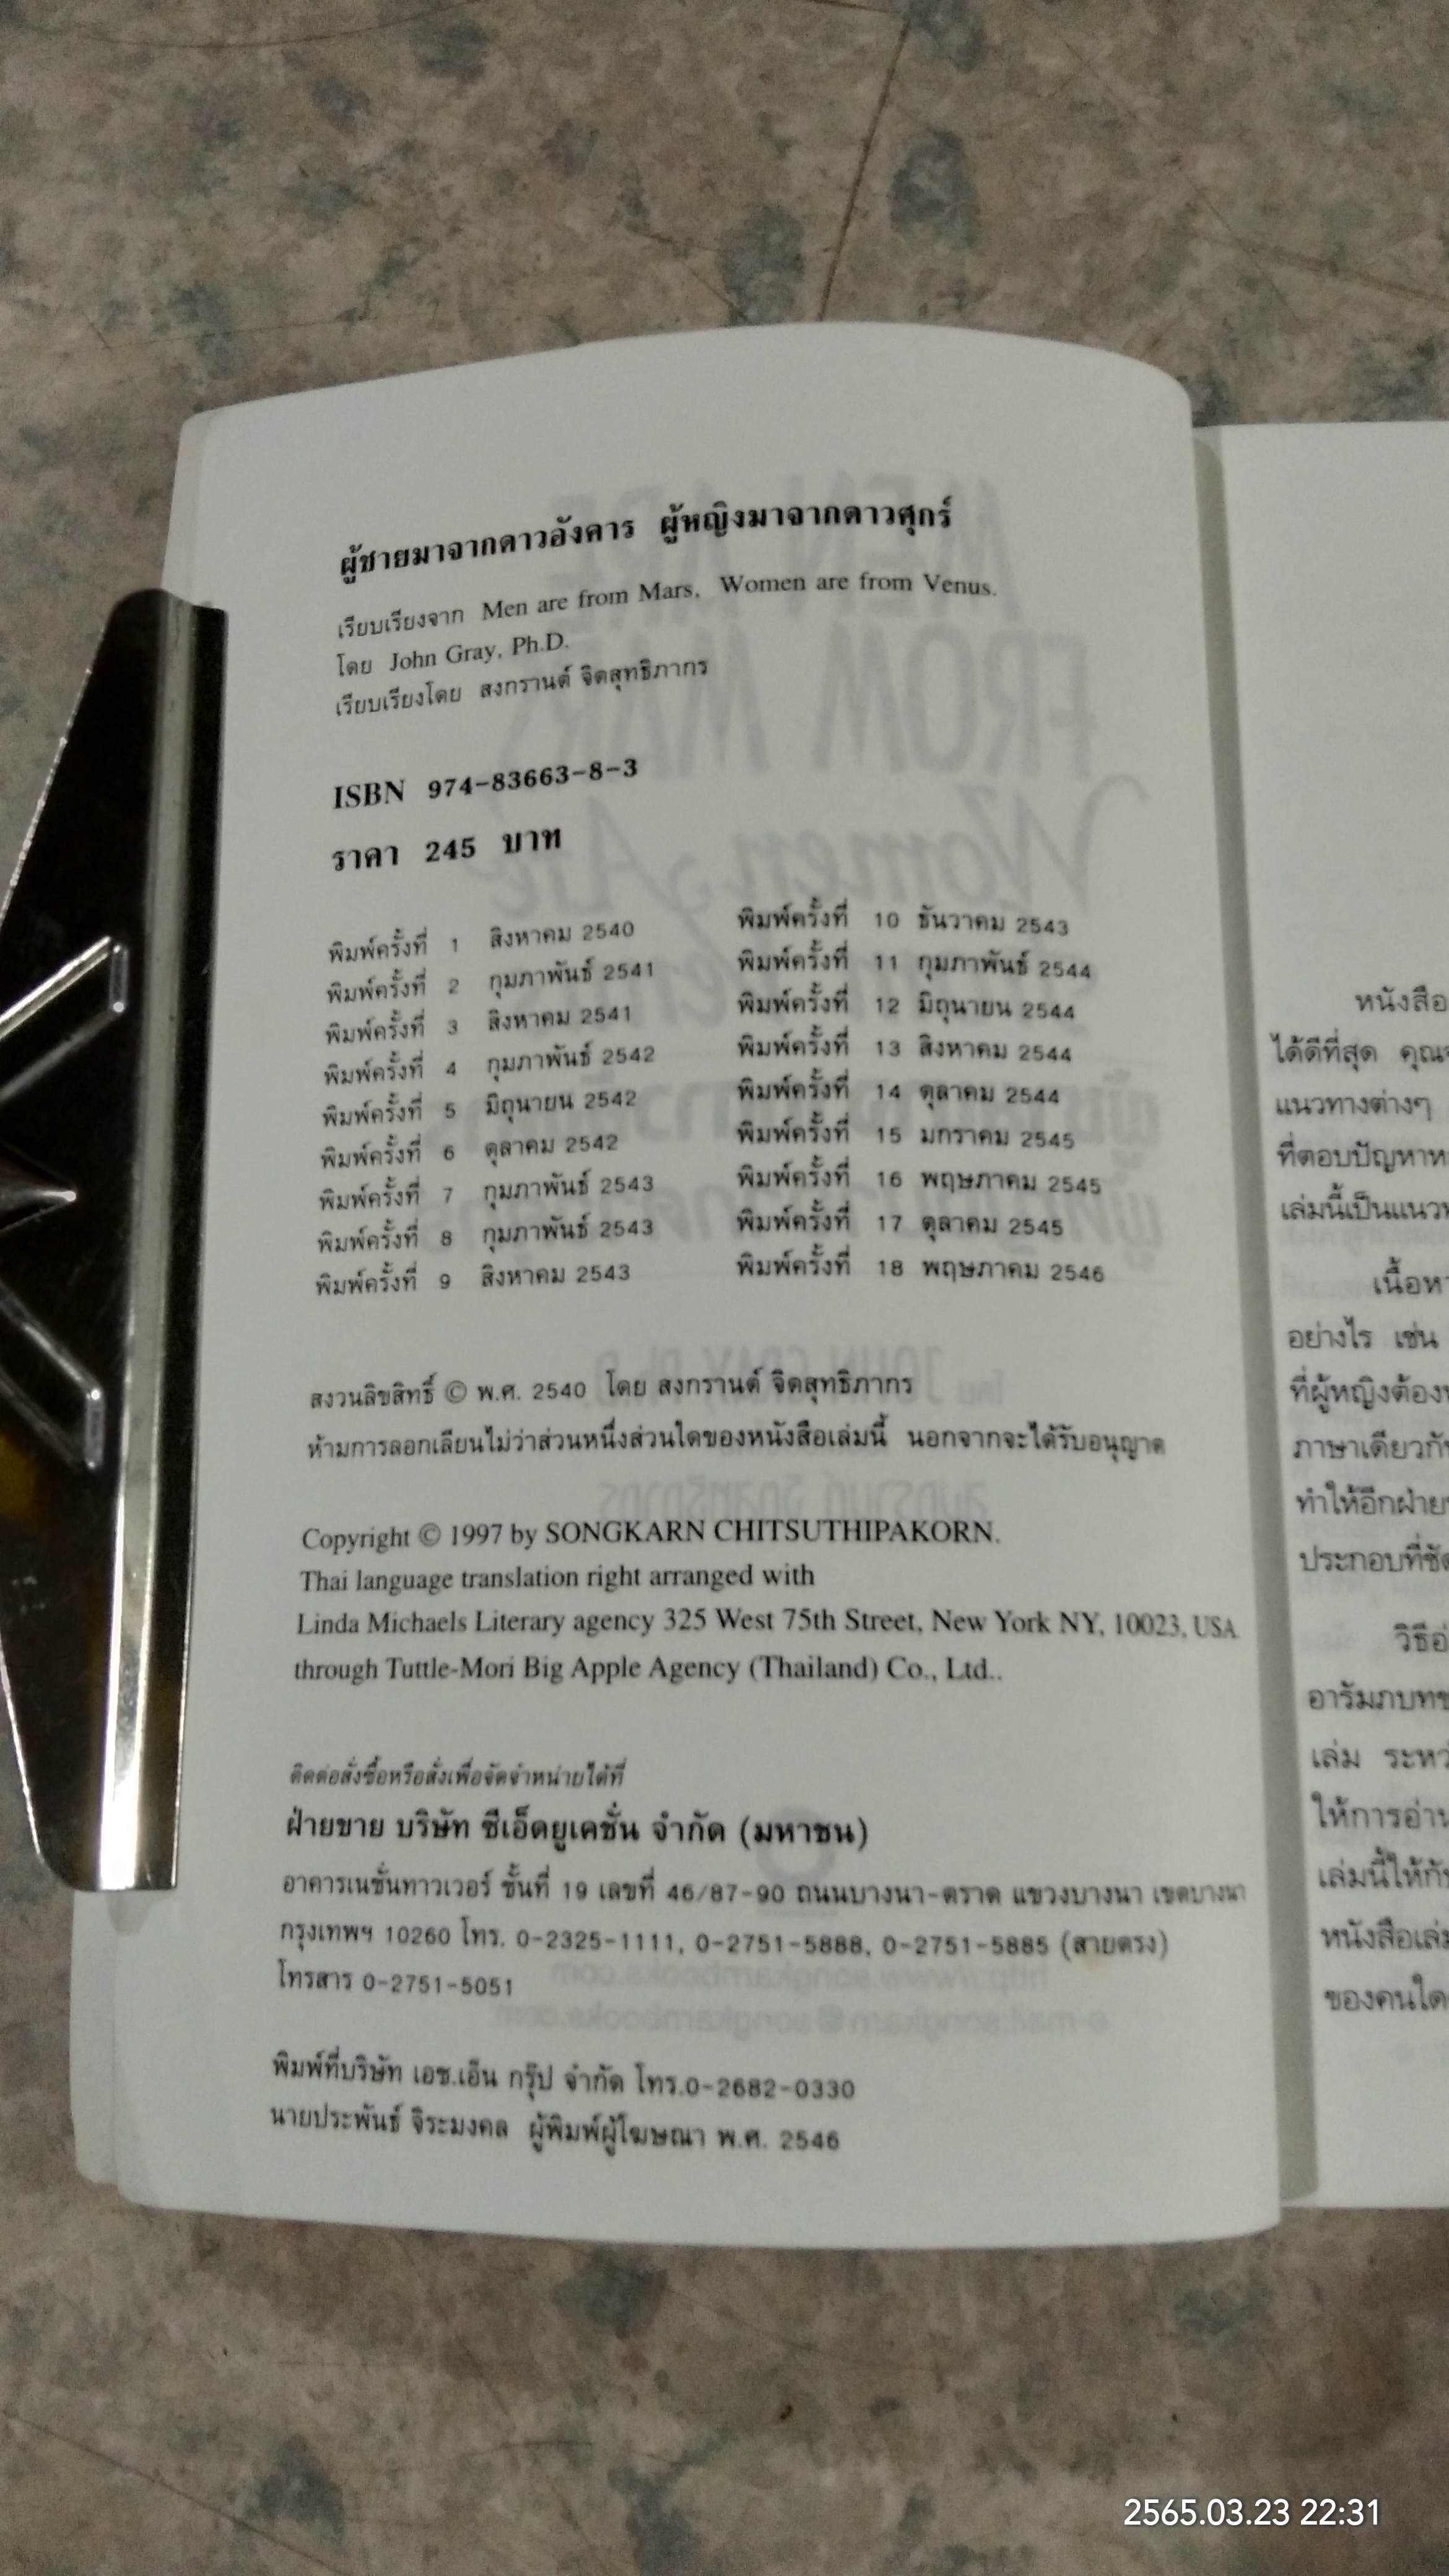 ผู้ชายมาจากดาวอังคาร ผู้หญิงมาจากดาวศุกร์
เรียบเรียงจาก Men are from Mars, Women are from Venus.
โดย John Gray, Ph.D.
เรียบเรียงโดย สงกรานต์ จิตสุทธิภากร
ISBN 974-83663-8-3
ราคา 245 บาท
พิมพ์ครั้งที่ 1 สิงหาคม 2540
พิมพ์ครั้งที่ 2 กุมภาพันธ์ 2541
พิมพ์ครั้งที่ 3 สิงหาคม 2541
พิมพ์ครั้งที่ 4 กุมภาพันธ์ 2542
พิมพ์ครั้งที่ 5 มิถุนายน 2542
พิมพ์ครั้งที่ 6 ตุลาคม 2542
พิมพ์ครั้งที่ 7 กุมภาพันธ์ 2543
พิมพ์ครั้งที่ 8 กุมภาพันธ์ 2543
พิมพ์ครั้งที่ 9 สิงหาคม 2543
พิมพ์ครั้งที่ 10 ธันวาคม 2543
พิมพ์ครั้งที่ 11 กุมภาพันธ์ 2544
พิมพ์ครั้งที่ 12 มิถุนายน 2544
พิมพ์ครั้งที่ 13 สิงหาคม 2544
พิมพ์ครั้งที่ 14 ตุลาคม 2544
พิมพ์ครั้งที่ 15 มกราคม 2545
พิมพ์ครั้งที่ 16 พฤษภาคม 2545
พิมพ์ครั้งที่ 17 ตุลาคม 2545
พิมพ์ครั้งที่ 18 พฤษภาคม 2546
สงวนลิขสิทธิ์ © พ.ศ. 2540 โดย สงกรานต์ จิตสุทธิภากร
ห้ามการลอกเลียนไม่ว่าส่วนหนึ่งส่วนใดของหนังสือเล่มนี้ นอกจากจะได้รับอนุญาต
Copyright © 1997 by SONGKARN CHITSUTHIPAKORN.
Thai language translation right arranged with
Linda Michaels Literary agency 325 West 75th Street, New York NY, 10023, USA
through Tuttle-Mori Big Apple Agency (Thailand) Co., Ltd..
ติดต่อสั่งซื้อหรือสั่งเพื่อจัดจำหน่ายได้ที่
ฝ่ายขาย บริษัท ซีเอ็ดยูเคชั่น จำกัด (มหาชน)
อาคารเนชั่นทาวเวอร์ ชั้นที่ 19 เลขที่ 46/87-90 ถนนบางนา-ตราด แขวงบางนา เขตบางนา
กรุงเทพฯ 10260 โทร. 0-2325-1111, 0-2751-5888, 0-2751-5885 (สายตรง)
โทรสาร 0-2751-5051
พิมพ์ที่บริษัท เอช.เอ็น กรุ๊ป จำกัด โทร.0-2682-0330
นายประพันธ์ จิระมงคล ผู้พิมพ์ผู้โฆษณา พ.ศ. 2546
หนังสือ
ได้ดีที่สุด
แนวทางต่างๆ
เนื้อหา
อย่างไร เช่น
เล่ม
2565.03.23 22:31